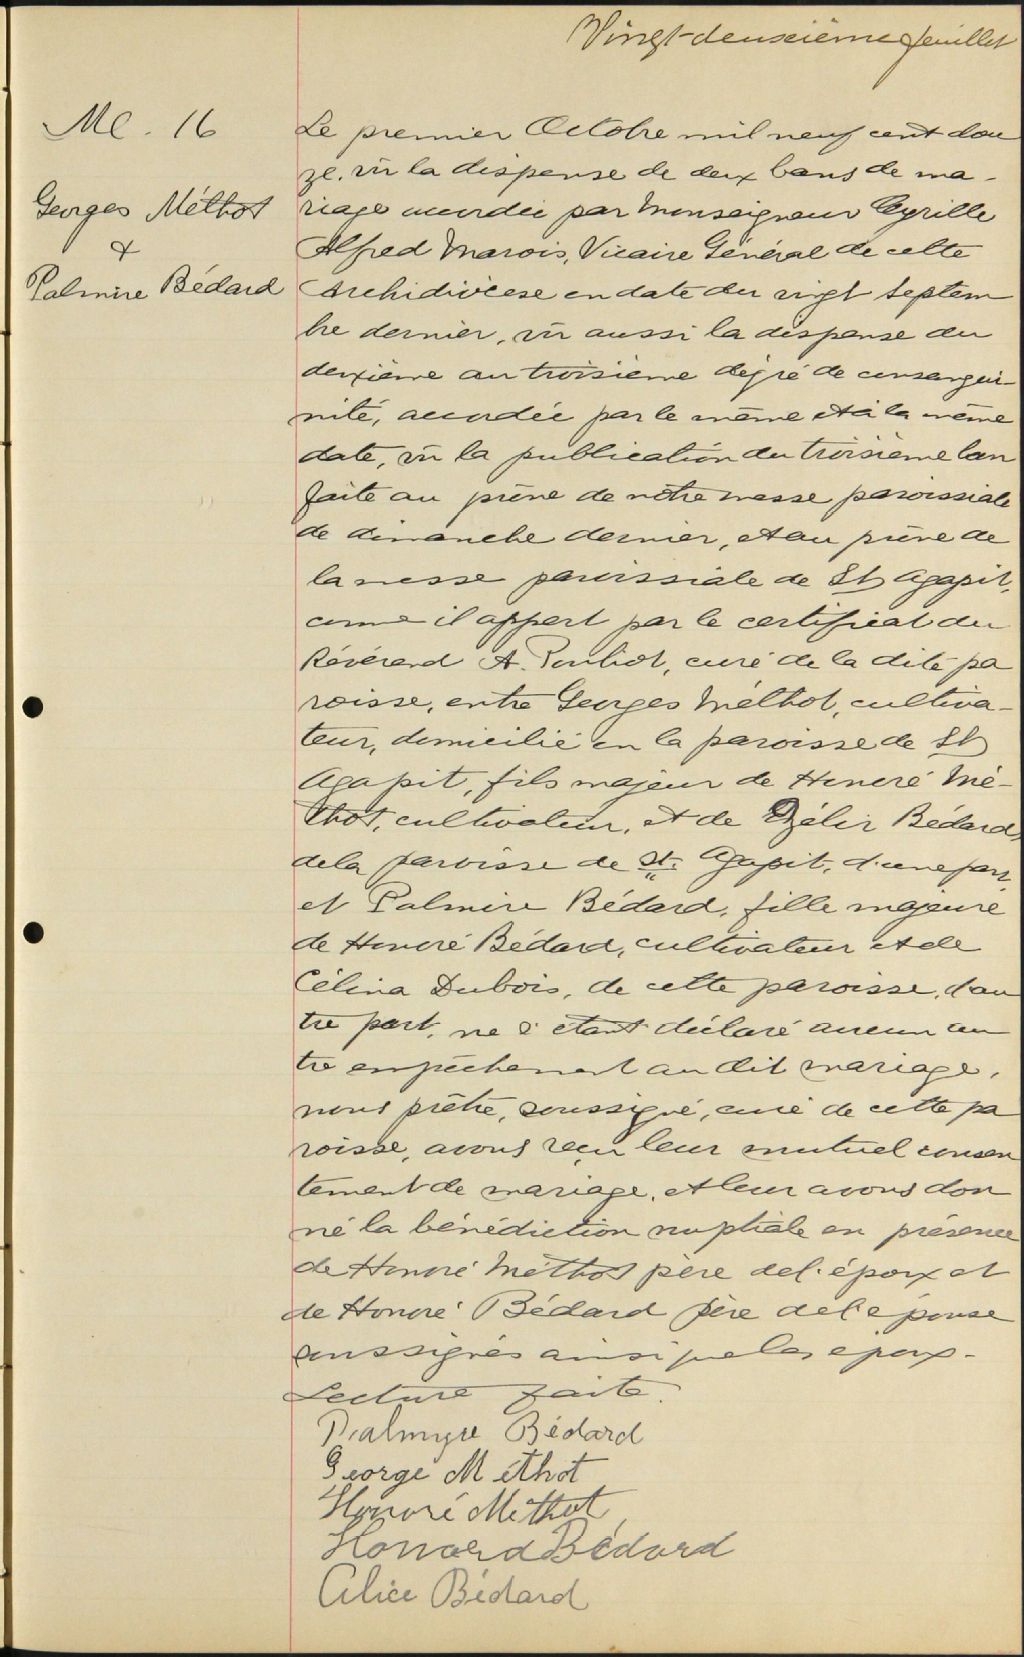 Vingt-deuxième feuillet
M. 16
Georges Méthot
&
Palmire Bédard
Le premier Octobre mil neuf cent dou
ze, vû la dispense de deux bans de ma-
riage accordée par Monseigneur Cyrille
Alfred Marois, Vicaire Général de cette
Archidiocèse en date du vingt Septem
bre dernier, vû aussi la dispense du
deuxième au troisième dégré de consangui-
nité, accordée par le même et à la même
date, vû la publication du troisième ban
faite au prône de notre messe paroissiale
de dimanche dernier, et au prône de
la messe paroissiale de St Agapit,
comme il appert par le certificat du
Révérend A. Pouliot, curé de la dite pa
roisse, entre Georges Méthot, cultiva-
teur, domicilié en la paroisse de St
Agapit, fils majeur de Honoré Mé-
thot, cultivateur, et de Bédard,
de la paroisse de St. Agapit, d'une part,
et Palmire Bédard, fille majeure
de Honoré Bédard, cultivateur et de
Célina Dubois, de cette paroisse, d'au
tre part, ne s'étant déclaré aucun au
tre empêchement au dit mariage,
nous prêtre, soussigné, curé de cette pa
roisse, avons reçu leur mutuel consen
tement de mariage, et leur avons don
né la bénédiction nuptiale en présence
de Honoré Méthot père de l'époux et
de Honoré Bédard père de l'épouse
soussignés ainsi que les époux.
Lecture faite.
Palmyre Bédard
George Méthot
Honoré Méthot
Honoré Bédard
Alice Bédard